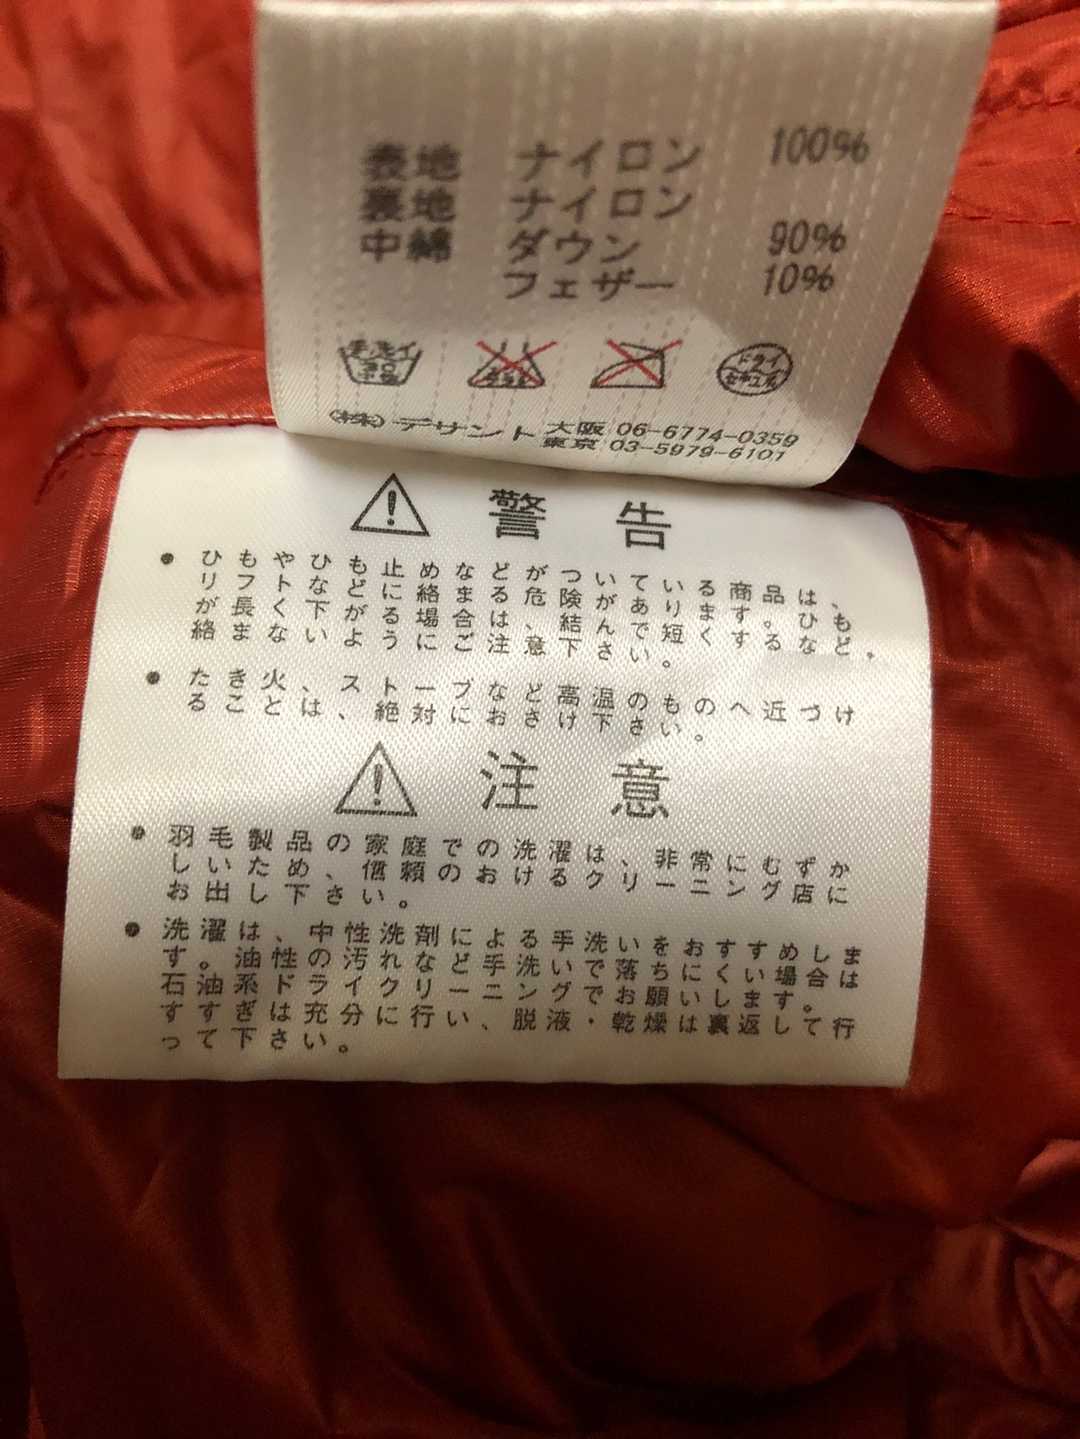 表地 ナイロン 100%
裏地 ナイロン
中綿 ダウン 90%
フェザー 10%
ドライ
セキユ系
(株)デサント 大阪 06-6774-0359
東京 03-5979-6101
警告
• ひもやひも止めなどがついている商品は、もど
リフトなどに絡まる危険があります。ひな
が長くなるがる場合は、結んで短くするなど、
絡まないようにご注意下さい。
• たき火、ストーブなど高温のものへ近づけ
ることは、絶対におさけ下さい。
注意
• 羽毛製品の家庭での洗濯は、非常にむずか
しいため、信頼のおけるクリーニング店に
お出し下さい。
• 洗濯は、中性洗剤による手洗いをおすすめしま
す。油性の汚れなど手洗いで落ちにくい場合は
石油系ドライクリーニングでお願いします。
すすぎは充分に行い、脱液・乾燥は裏返して行
って下さい。